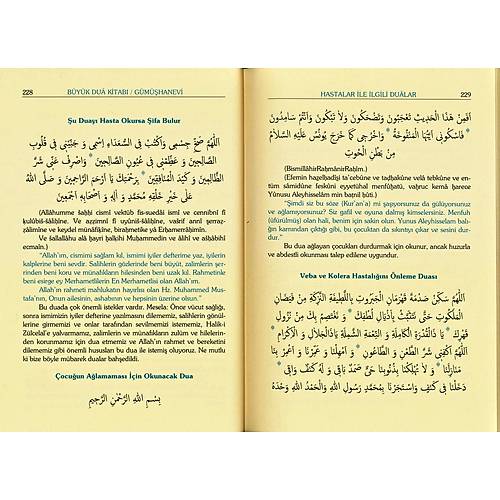 228 BÜYÜK DUÂ KİTABI / GÜMÜŞHANEVİ
Şu Duayı Hasta Okursa Şifa Bulur
اَللّٰهُمَّ صَحِّحْ جِسْمِى وَاكْتُبْ فِى السُّعَدَاءِ اِسْمِى وَ جَنِّبْنِى فِى قُلُوبِ
الصَّالِحِينَ وَ عَظِّمْنِى فِى عُيُونِ الصَّالِحِينَ * وَاصْرِفْ عَنِّى شَرَّ
الظَّالِمِينَ وَ كَيْدَ الْمُنَافِقِينَ * بِرَحْمَتِكَ يَا اَرْحَمَ الرَّاحِمِينَ وَ صَلَّى اللّٰهُ
عَلٰى خَيْرِ خَلْقِهِ مُحَمَّدٍ وَ اٰلِهِ وَ اَصْحَابِهِ اَجْمَعِينَ
(Allâhumme sahhi cismî vektüb fis-suedâi ismî ve cennibnî fî
kulûbis-sâlihîne. Ve azzimnî fî uyûnis-sâlihîne, vasrif annî şerraz-
zâlimîne ve keydel münâfikîne, birahmetike yâ Erhamerrâhimîn.
Ve sallallâhu alâ hayri halkihî Muhammedin ve âlihî ve ashâbihî
ecmaîn.)
"Allah'ım, cismimi sağlam kıl, ismimi iyiler defterine yaz, iyilerin
kalplerine beni sevdir. Salihlerin gözlerinde beni büyüt, zalimlerin şer-
rinden beni koru ve münafıkların hilesinden beni uzak kıl. Rahmetinle
beni esirge ey Merhametlilerin En Merhametlisi olan Allah'ım.
Allah'ın rahmeti mahlukatın hayırlısı olan Hz. Muhammed Mus-
tafa'nın, Onun ailesinin, ashabının ve hepsinin üzerine olsun."
Bu duada çok önemli istekler vardır. Mesela: Önce vücut sağlığı,
sonra ismimizin iyiler defterine yazılmasını dilememiz, salihlerin gönül-
lerine girmemizi ve onlar tarafından sevilmemizi istememiz, Halik-i
Zülcelal'e yalvarmamız, zalimlerin ve münafıkların zulüm ve hilelerin-
den korunmamız için dua etmemiz ve Allah'ın rahmet ve bereketini
dilememiz gibi önemli hususları bu dua ile istemiş oluyoruz. Ne mutlu
ki bize böyle mübarek dualar bahşedildi.
Çocuğun Ağlamaması İçin Okunacak Dua
بِسْمِ اللّٰهِ الرَّحْمٰنِ الرَّحِيمِ
HASTALAR İLE İLGİLİ DUÂLAR 229
اَفَمِنْ هٰذَا الْحَدِيثِ تَعْجَبُونَ وَتَضْحَكُونَ وَلَا تَبْكُونَ وَاَنْتُمْ سَامِدُونَ
* فَاسْكُونِى اَيَّتُهَا الْمَنْفُوحَةُ * وَاخْرُجِى كَمَا خَرَجَ يُونُسَ عَلَيْهِ السَّلَامُ
مِنْ بَطْنِ الْحُوتِ
(BismillâhirRahmânirRahîm.)
(Efemin hazelhadîsi ta'cebûne ve tadhakûne velâ tebkûne ve en-
tüm sâmidûne feskûni eyyetühal menfûhatü, vahruc kemâ harece
Yûnusu Aleyhisselâm min batnil hûti.)
"Şimdi siz bu söze (Kur'an'a) mı şaşıyorsunuz da gülüyorsunuz
ve ağlamıyorsunuz? Siz gafil ve oyuna dalmış kimselersiniz. Menfuh
(üfürülmüş olan) hastalık, sakin ol ve çık. Yunus Aleyhisselam, balı-
ğın karnından çıktığı gibi, bu çocuktan da sıkıntıyı çıkar ve sesini dur-
dur."
Bu dua ağlayan çocukları durdurmak için okunur, ancak huzurla
ve abdestli okunmayı talep edilme uygundur.
Veba ve Kolera Hastalığını Önleme Duası
اَللّٰهُمَّ سَكِّنْ صَدْمَةَ قَهْرَمَانِ الْجَبَرُوتِ بِاللَّطِيفَةِ النَّازِلَةِ مِنْ فَيَضَانِ
الْمَلَكُوتِ حَتّٰى نَتَشَبَّثَ بِاَذْيَالِ لُطْفِكَ * وَ نَعْتَصِمَ بِكَ مِنْ نُزُولِ
قَهْرِكَ * يَا ذَا الْقُدْرَةِ الْكَامِلَةِ وَ النِّعْمَةِ الشَّامِلَةِ يَا ذَا الْجَلَالِ وَ الْاِكْرَامِ *